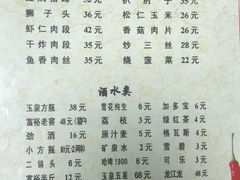 狮子头 32元 松仁玉米 26元
虾仁肉段 42元 香菇肉片 26元
干炸肉段 35元 炒三丝 28元
鱼香肉丝 35元 烧菠菜 28元
酒水类
玉泉方瓶 38元 雪花纯生 6元 加多宝 6元
富裕老窖 48元 荔枝 3元 绿红茶 4元
劲酒 16元 原汁麦 5元 格瓦斯 5元
小方瓶 10元 矿泉水 2元 雪碧 3元
二锅头 6元 哈啤1900 6元 可乐 3元
富裕半斤 12元 玉泉五星 68元 龙江龙 48元